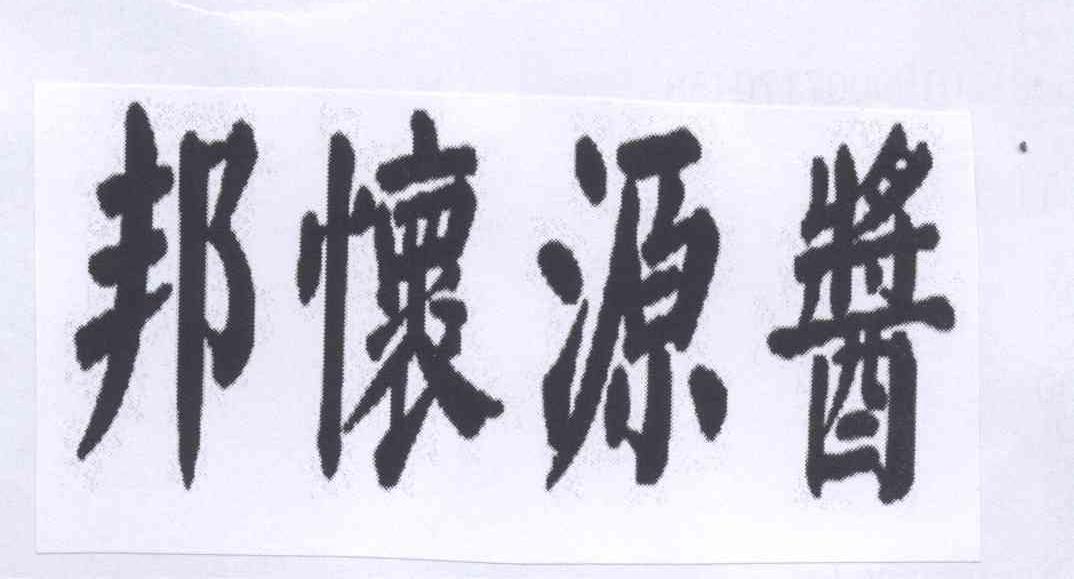 邦懷源醬